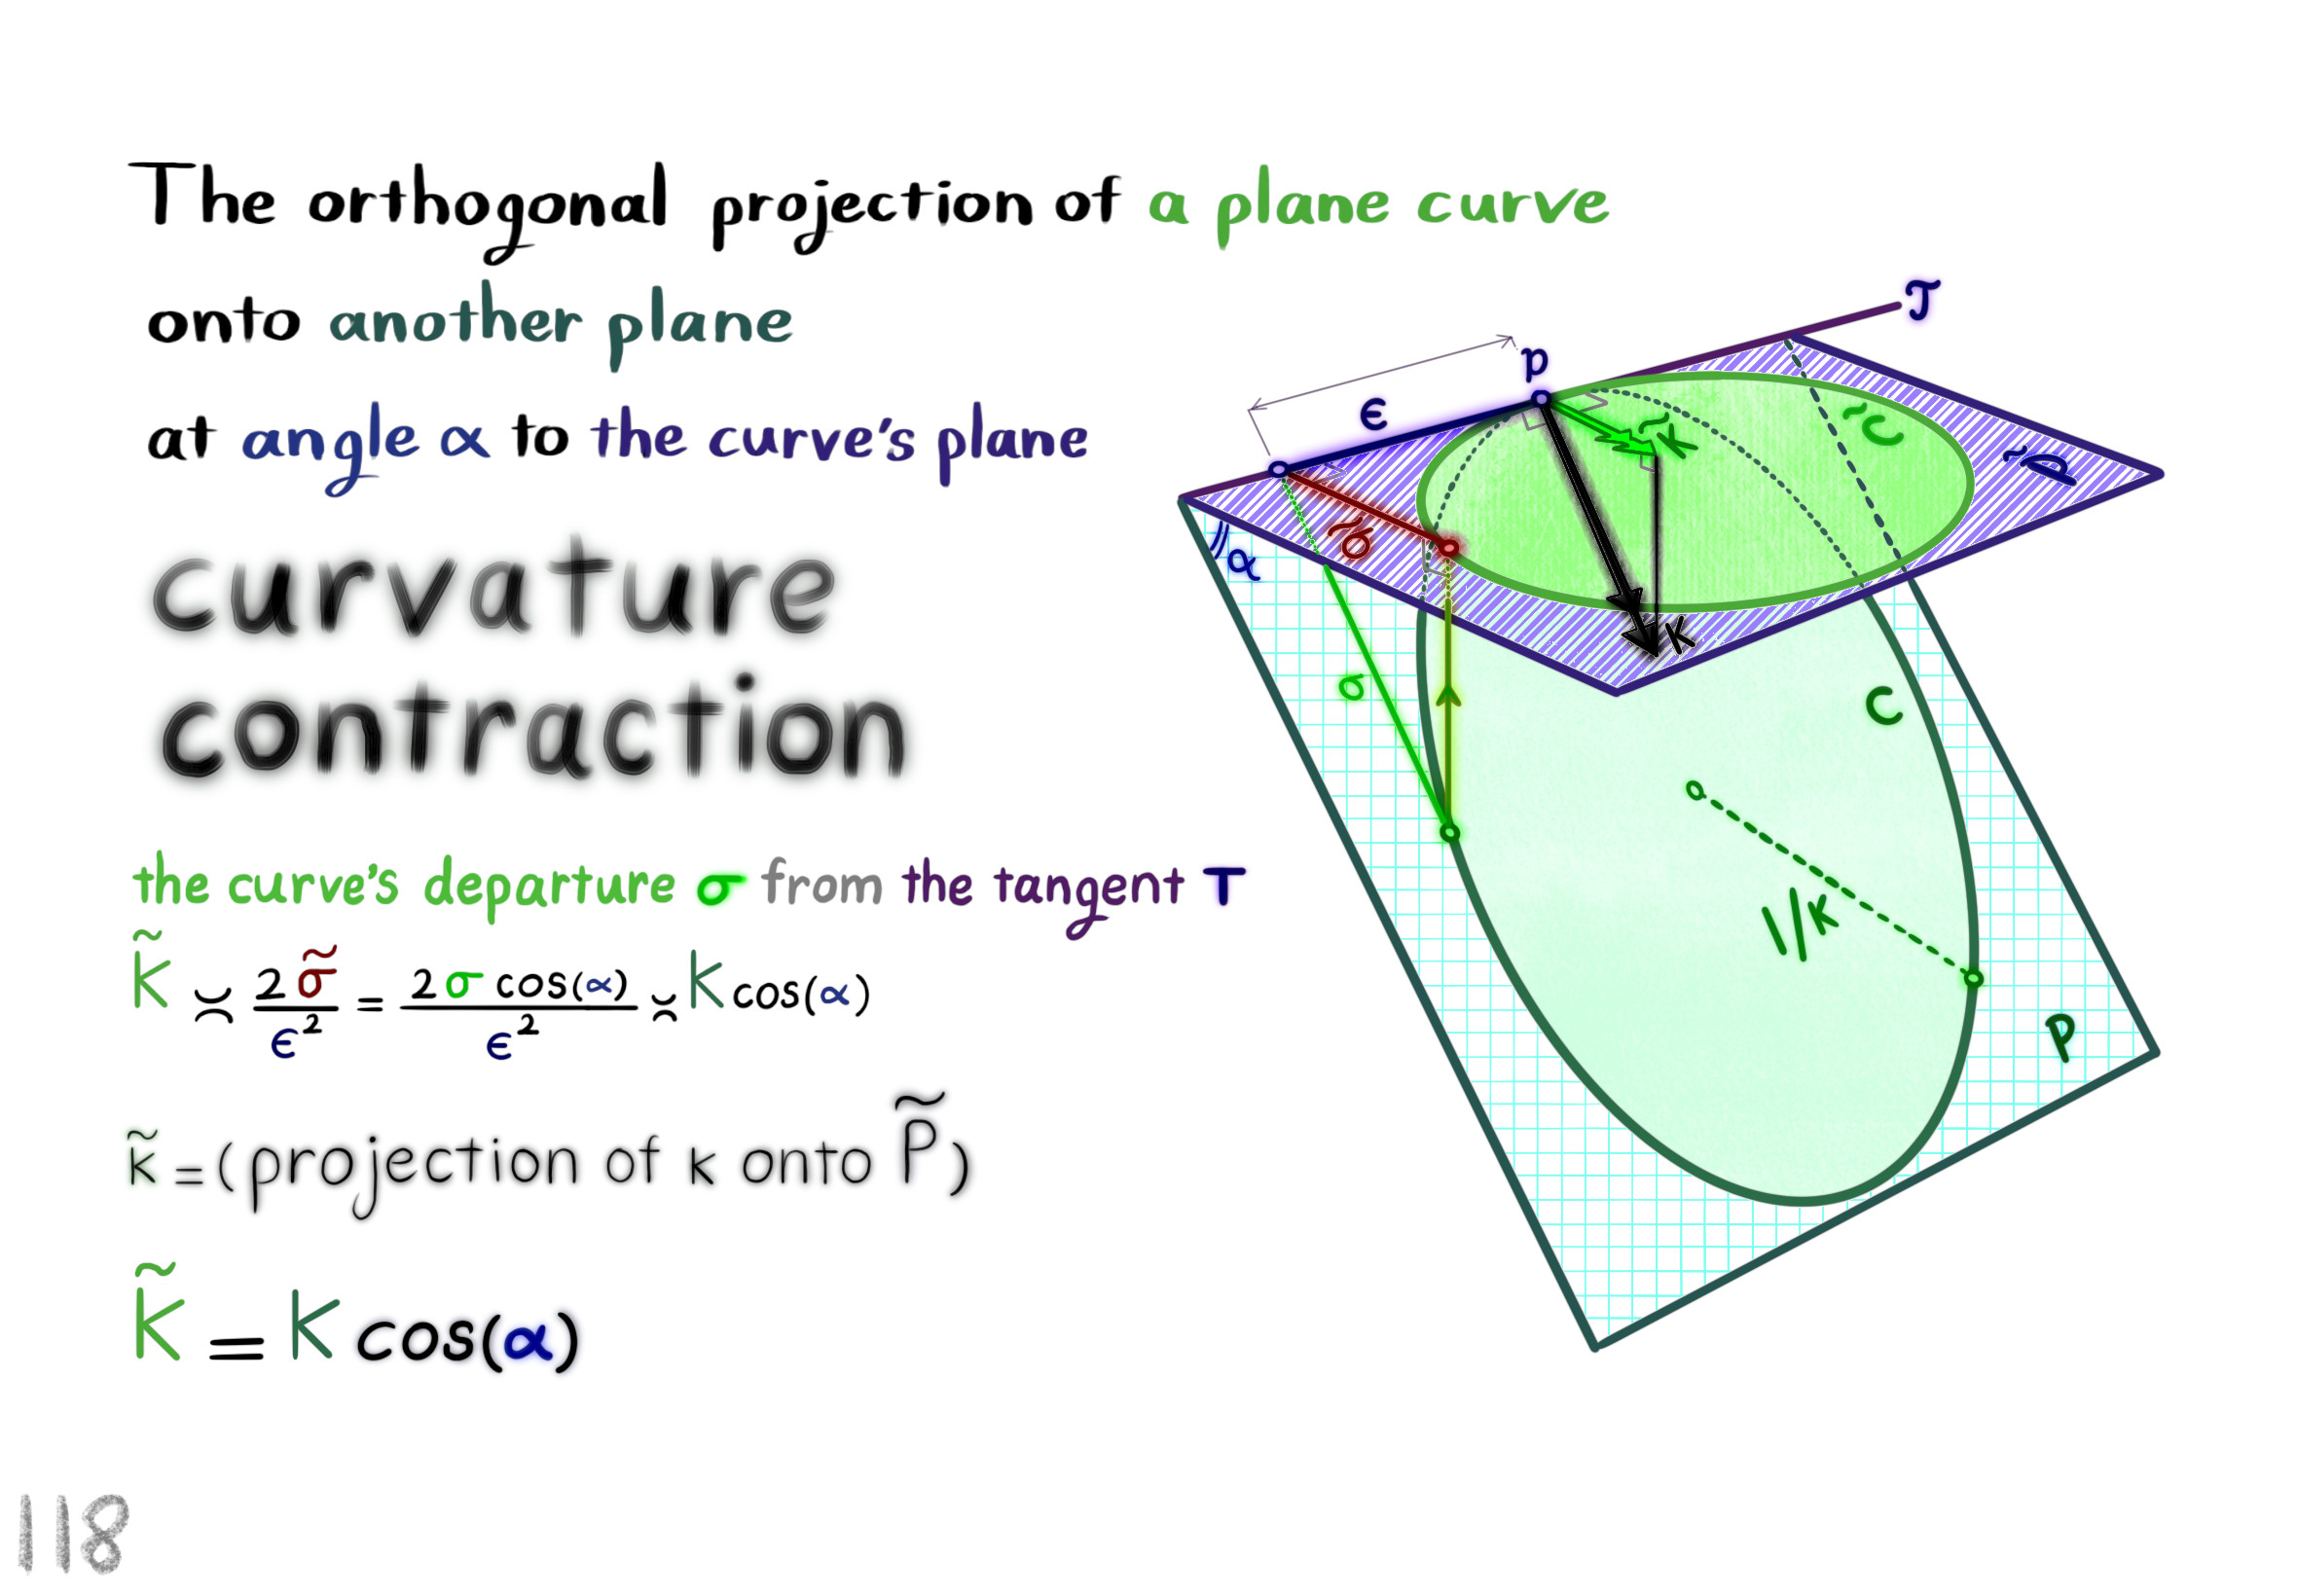 The orthogonal projection of a plane curve
onto another plane
at angle α to the curve's plane
curvature
contraction
the curve's departure σ from the tangent T
κ̃ ≍ 2 σ̃ / ϵ² = 2 σ cos(α) / ϵ² ≍ κ cos(α)
κ̃ = (projection of κ onto P̃)
κ̃ = κ cos(α)
118
T
p
ϵ
κ̃
C̃
P̃
σ̃
α
κ
σ
C
1/κ
P